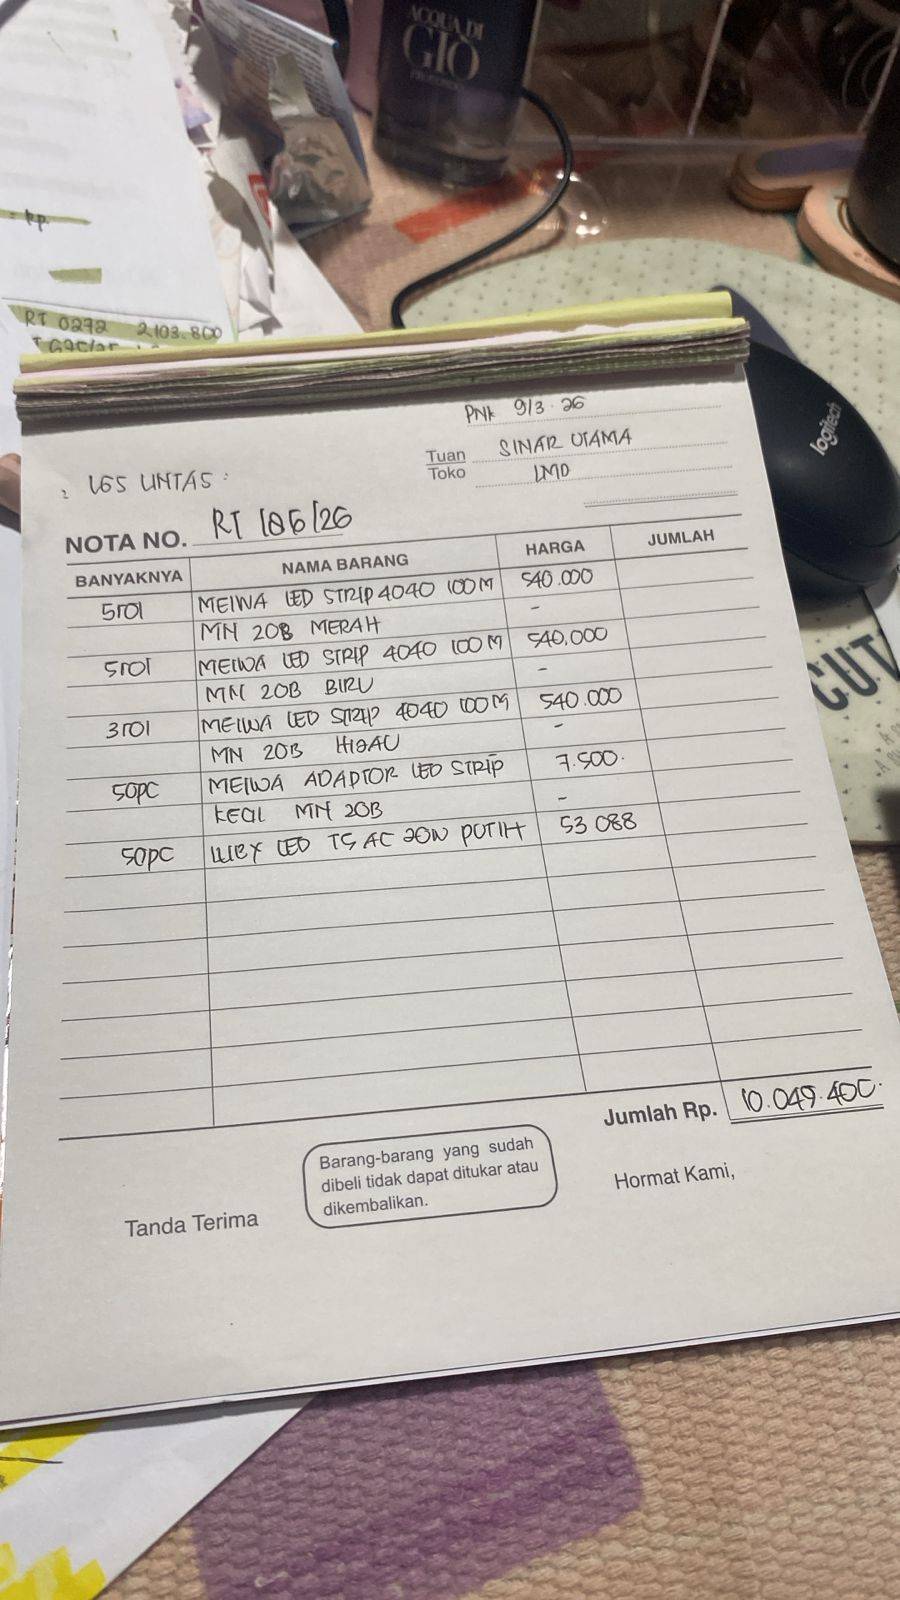 ACQUA DI
GIO
= Rp.
RT 0272 2.103.800
PNK 9/3.26
Tuan SINAR UTAMA
Toko LMD
logitech
LGS LINTAS :
NOTA NO. RT 186/26
BANYAKNYA NAMA BARANG HARGA JUMLAH
5rol MEIWA LED STRIP 4040 100M 540.000
MN 20B MERAH -
5rol MEIWA LED STRIP 4040 100M 540.000
MN 20B BIRU -
3rol MEIWA LED STRIP 4040 100M 540.000
MN 20B HIJAU -
50PC MEIWA ADAPTOR LED STRIP 7.500.
KECIL MN 20B -
50PC LED T5 AC 20W PUTIH 53 088
CUT
Jumlah Rp. 10.049.400.
Barang-barang yang sudah
dibeli tidak dapat ditukar atau
dikembalikan.
Tanda Terima
Hormat Kami,